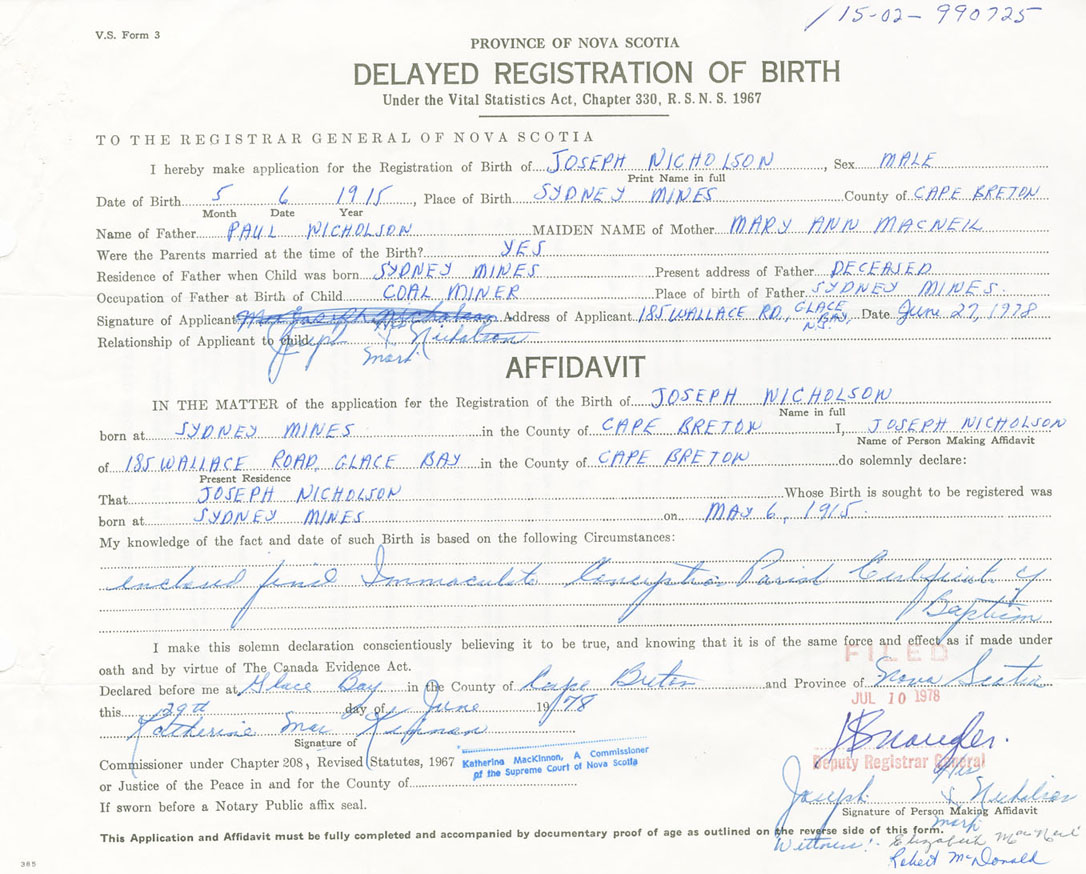 /15-02-990725
V.S. Form 3
PROVINCE OF NOVA SCOTIA
DELAYED REGISTRATION OF BIRTH
Under the Vital Statistics Act, Chapter 330, R.S.N.S. 1967
TO THE REGISTRAR GENERAL OF NOVA SCOTIA
I hereby make application for the Registration of Birth of JOSEPH NICHOLSON, Sex MALE
Print Name in full
Date of Birth 5 6 1915, Place of Birth SYDNEY MINES County of CAPE BRETON
Month Date Year
Name of Father PAUL NICHOLSON MAIDEN NAME of Mother MARY ANN MACNEIL
Were the Parents married at the time of the Birth? YES
Residence of Father when Child was born SYDNEY MINES Present address of Father DECEASED
Occupation of Father at Birth of Child COAL MINER Place of birth of Father SYDNEY MINES.
Signature of Applicant Address of Applicant 185 WALLACE RD, GLACE BAY, N.S. Date June 27, 1978
Relationship of Applicant to child Joseph X Nicholson
mark
AFFIDAVIT
IN THE MATTER of the application for the Registration of the Birth of JOSEPH NICHOLSON
Name in full
born at SYDNEY MINES in the County of CAPE BRETON I, JOSEPH NICHOLSON
Name of Person Making Affidavit
of 185 WALLACE ROAD, GLACE BAY in the County of CAPE BRETON do solemnly declare:
Present Residence
That JOSEPH NICHOLSON Whose Birth is sought to be registered was
born at SYDNEY MINES on MAY 6, 1915.
My knowledge of the fact and date of such Birth is based on the following Circumstances:
enclosed find Immaculate Conception Parish Certificate of
Baptism
I make this solemn declaration conscientiously believing it to be true, and knowing that it is of the same force and effect as if made under
oath and by virtue of The Canada Evidence Act.
FILED
Declared before me at Glace Bay in the County of Cape Breton and Province of Nova Scotia
JUL 10 1978
this 29th day of June 1978
Katherine MacKinnon
Signature of
Commissioner under Chapter 208, Revised Statutes, 1967
Katherine MacKinnon, A Commissioner
of the Supreme Court of Nova Scotia
Deputy Registrar General
or Justice of the Peace in and for the County of
his
Joseph X Nicholson
Signature of Person Making Affidavit
mark
If sworn before a Notary Public affix seal.
This Application and Affidavit must be fully completed and accompanied by documentary proof of age as outlined on the reverse side of this form.
Wittness: Elizabeth MacNeil
Robert McDonald
385